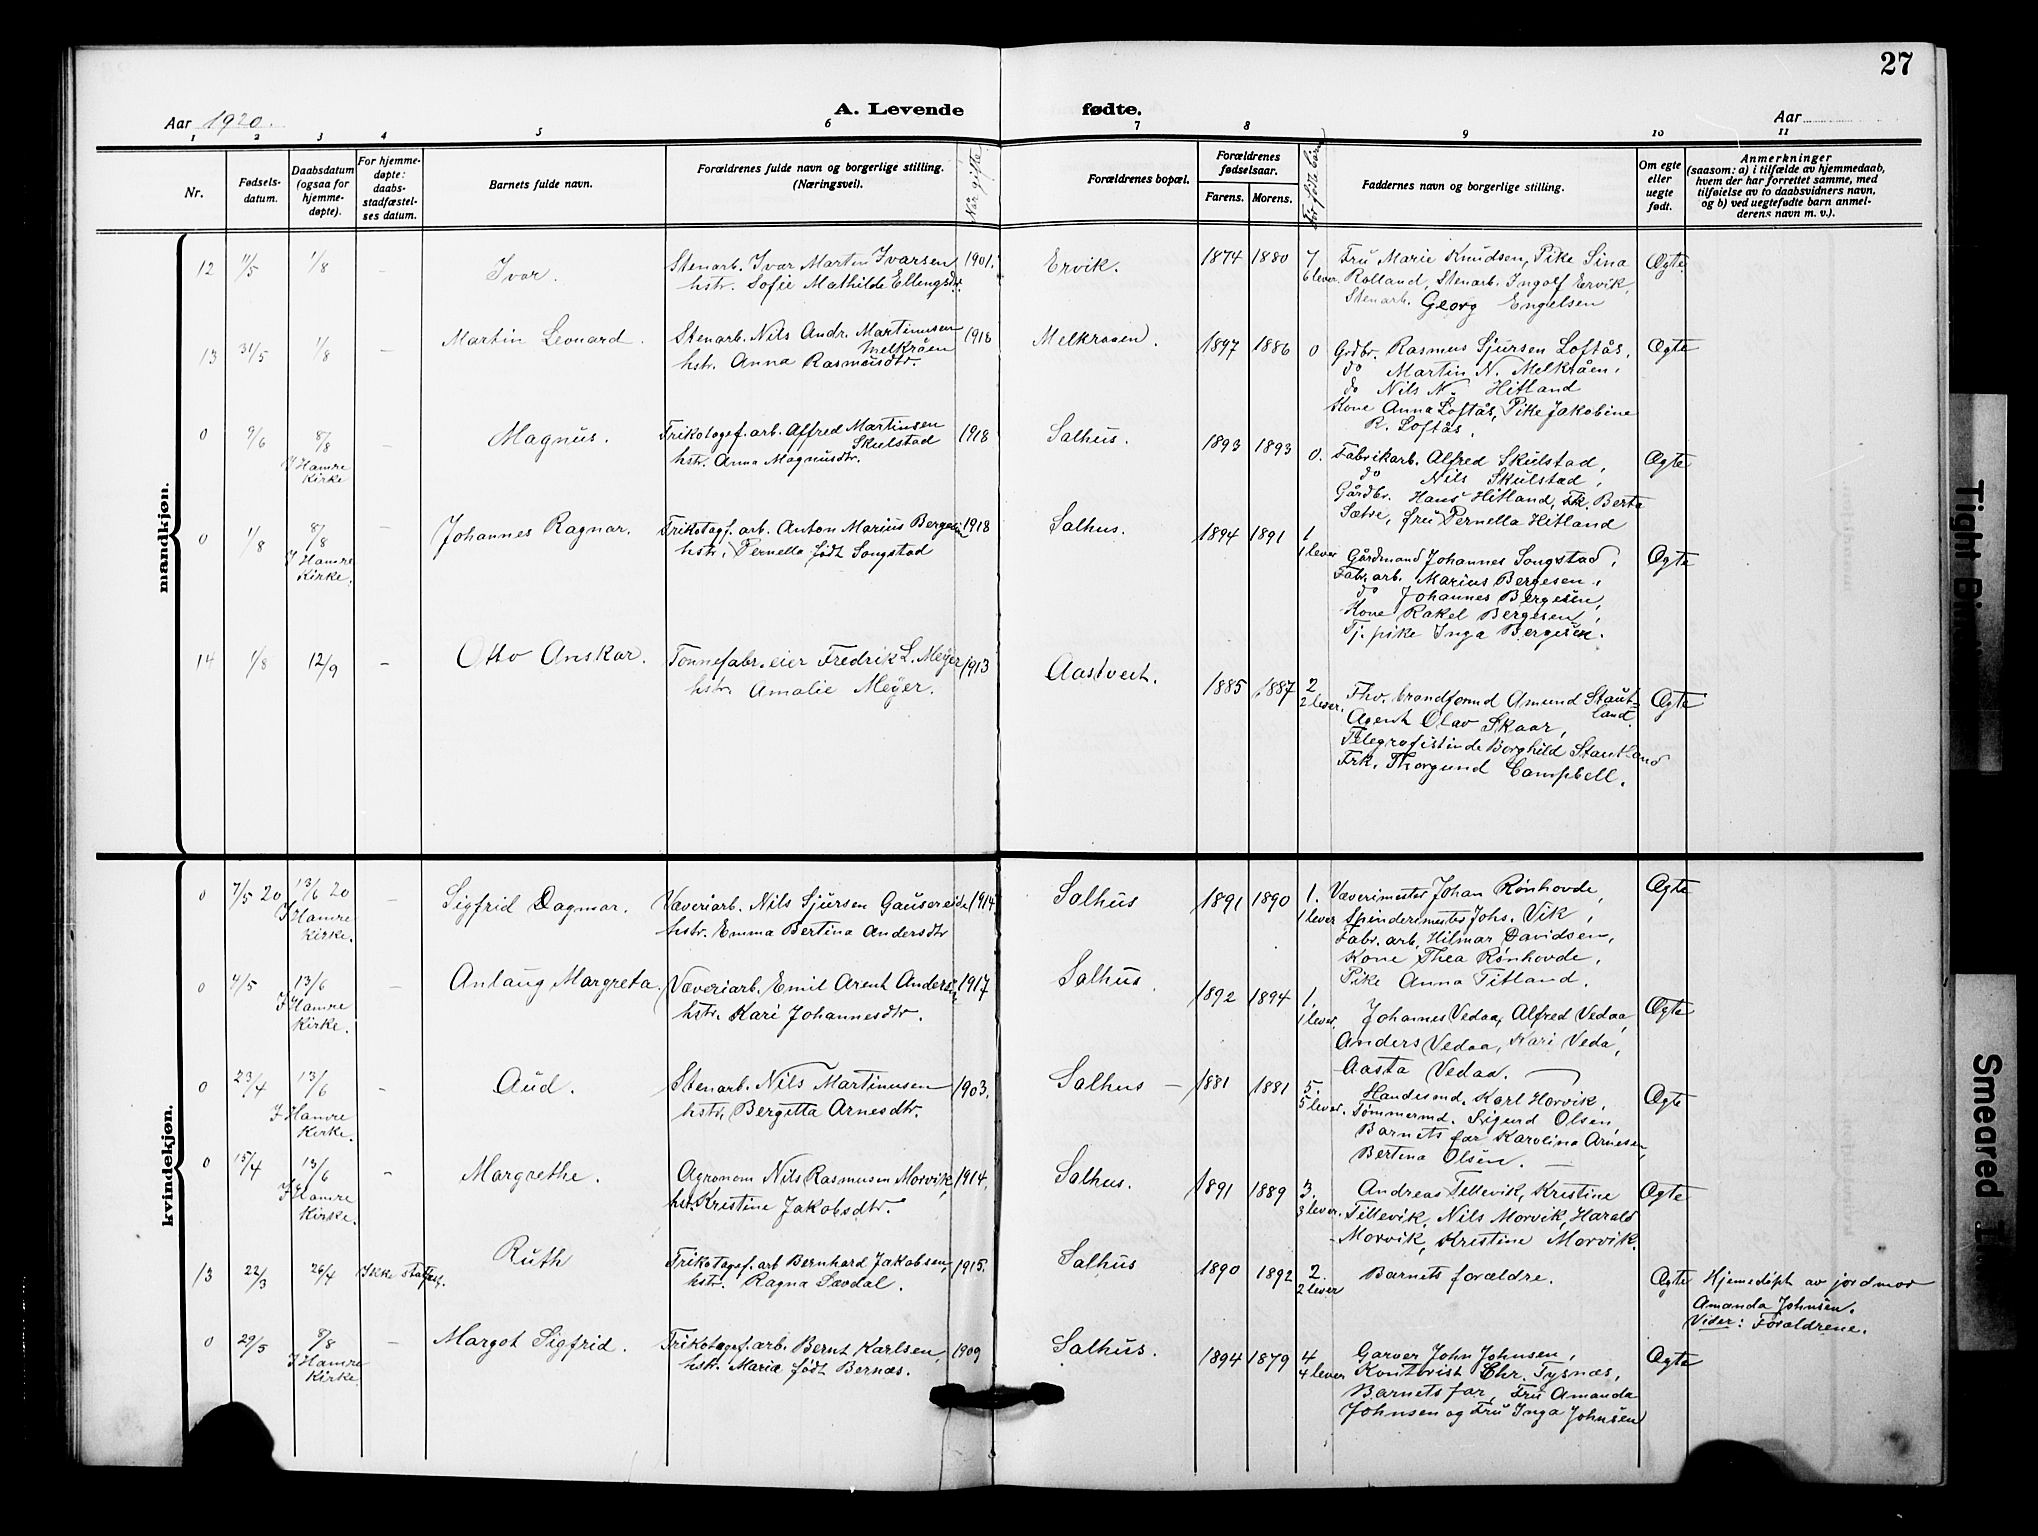 27
A. Levende fødte.
Aar 1920.
Aar
1 2 3 4 5 6 7 8 9 10 11
Nr.
Fødsels-
datum.
Daabsdatum
(ogsaa for
hjemme-
døpte).
For hjemme-
døpte:
daabs-
stadfæstel-
ses datum.
Barnets fulde navn.
Forældrenes fulde navn og borgerlige stilling.
(Næringsvei).
Når gifte
Forældrenes bopæl.
Forældrenes
fødselsaar.
Farens. Morens.
Før fødte børn
Faddernes navn og borgerlige stilling.
Om egte
eller
uegte
født.
Anmerkninger
(saasom: a) i tilfælde av hjemmedaab,
hvem der har forrettet samme, med
tilføielse av to daabsvidners navn,
og b) ved uegtefødte barn anmel-
derens navn m. v.).
mandkjøn.
12 11/5 1/8 - Ivar. Stenarb. Ivar Martin Ivarsen 1901. Ervik. 1874 1880 7 Fru Marie Knudsen, Pike Sina Ægte.
hstr. Sofie Mathilde Ellingsdr. 6 lever. Rolland, Stenarb. Ingolf Ervik,
Stenarb. Georg Engelsen
13 31/5 1/8 - Martin Leonard. Stenarb. Nils Andr. Martinusen 1918 Melkraaen. 1897 1886 0 Grdbr. Rasmus Sjursen Loftås, Ægte
Melkråen
hstr. Anna Rasmusdtr. do Martin N. Melkråen,
do Nils N. Hitland
Kone Anna Loftås, Pike Jakobine
R. Loftås.
0 9/6 8/8 - Magnus. Trikotagef. arb. Alfred Martinsen 1918 Salhus. 1893 1893 0. Fabrikarb. Alfred Skulstad, Ægte
I Hamre Skulstad
Kirke hstr. Anna Magnusdtr. do Nils Skulstad,
Gårdbr. Hans Hitland, Frk. Berta
Sætre, fru Pernella Hitland
0 1/8 8/8 - Johannes Ragnar. Trikotagf. arb. Anton Marius Bergesen 1918 Salhus. 1894 1891 1 Gårdmand Johannes Songstad, Ægte
I Hamre hstr. Pernella født Songstad 1 lever Fabr. arb. Marius Bergesen,
Kirke. do Johannes Bergesen,
Kone Rakel Bergesen,
Tj. pike Inga Bergesen.
14 1/8 12/9 - Otto Anskar. Tønnefabr. eier Fredrik L. Meyer 1913 Aastveit. 1885 1887 2 Fhv. brandformd Amund Staut- Ægte
hstr. Amalie Meyer. 2 lever. land.
Agent Olav Skaar,
Telegrafistinde Borghild Stautland
Frk. Thorgund Campbell.
kvindekjøn.
0 7/5 20 13/6 20 - Sigfrid Dagmar. Væveriarb. Nils Sjursen Gausereide 1914 Salhus 1891 1890 1. Væverimester Johan Rønhovde, Ægte
I Hamre hstr. Emma Bertina Andersdtr 1 lever Spinderimester Johs. Vik,
Kirke. Fabr. arb. Hilmar Davidsen,
Kone Thea Rønhovde,
Pike Anna Titland.
0 4/5 13/6 - Anlaug Margreta. Væveriarb. Emil Arent Andersen 1917 Salhus. 1892 1894 1. Johannes Vedaa, Alfred Vedaa, Ægte
I Hamre hstr. Kari Johannesdtr. 1 lever. Anders Vedaa, Kari Veda,
Kirke. Aasta Vedaa.
0 23/4 13/6 - Aud. Stenarb. Nils Martinusen 1903. Salhus - 1881 1881 5. Handesmd. Karl Horvik, Ægte
I Hamre hstr. Bergitta Arnesdtr. 5 lever. Tømmermd. Sigurd Olsen,
Kirke. Barnets far Karolina Arnesen,
Bertina Olsen. -
0 15/4 13/6 - Margrethe. Agronom Nils Rasmusen Morvik, 1914. Salhus. 1891 1889 3. Andreas Tellevik, Kristine Ægte
I Hamre hstr. Kristine Jakobsdtr. 3 lever. Tellevik, Nils Morvik, Harald
Kirke. Morvik, Kristine Morvik.
13 22/3 26/4 Ikke statfest. Ruth Trikotagef. arb Bernhard Jakobsen, 1915. Salhus 1890 1892 2. Barnets forældre. Ægte Hjemedøpt av jordmor
hstr. Ragna Sævdal. 2 lever Amanda Johnsen.
Vider: Forældrene.
0 29/5 8/8 - Margot Sigfrid. Trikotagef. arb. Bernt Karlsen, 1909 Salhus. 1894 1879 4 Garver John Johnsen, Ægte
I Hamre hstr. Maria født Bernæs. 4 lever Kontorist Chr. Tysnæs,
Kirke. Barnets far, Fru Amanda
Johnsen og Fru Inga Johnsen
Smeared